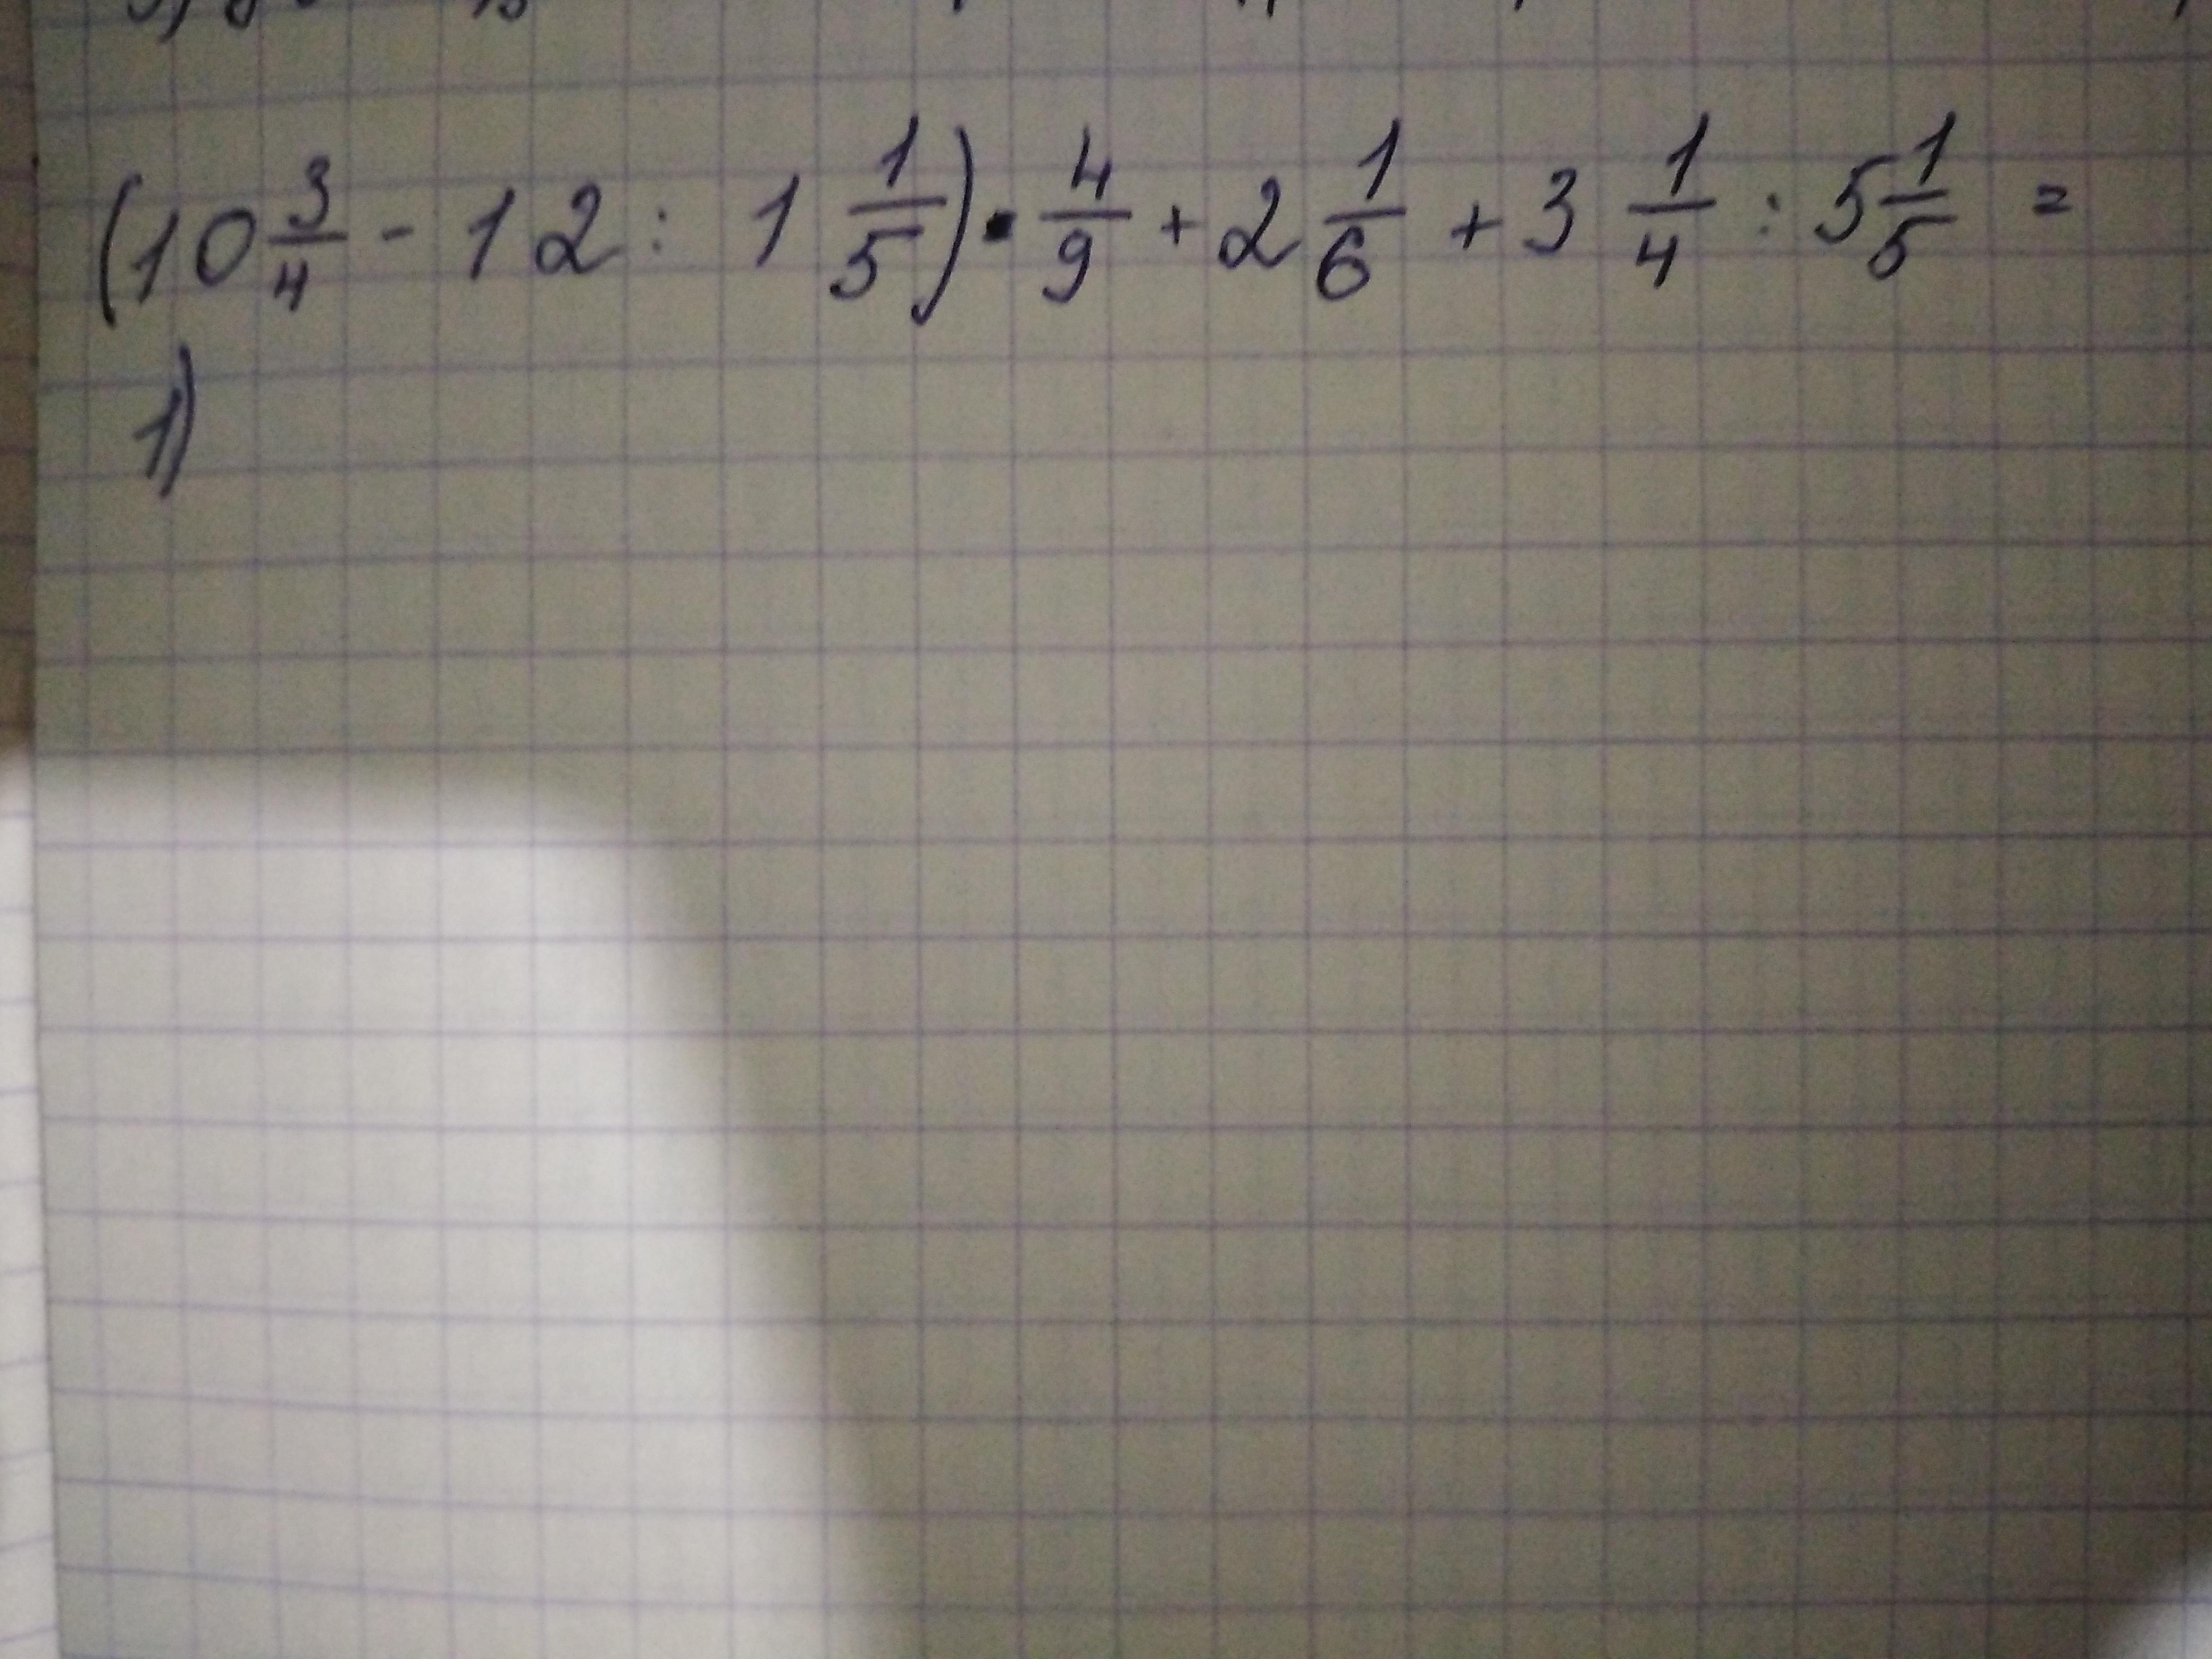 (10 3/4 - 12 : 1 1/5) · 4/9 + 2 1/6 + 3 1/4 : 5 1/5 =
1)